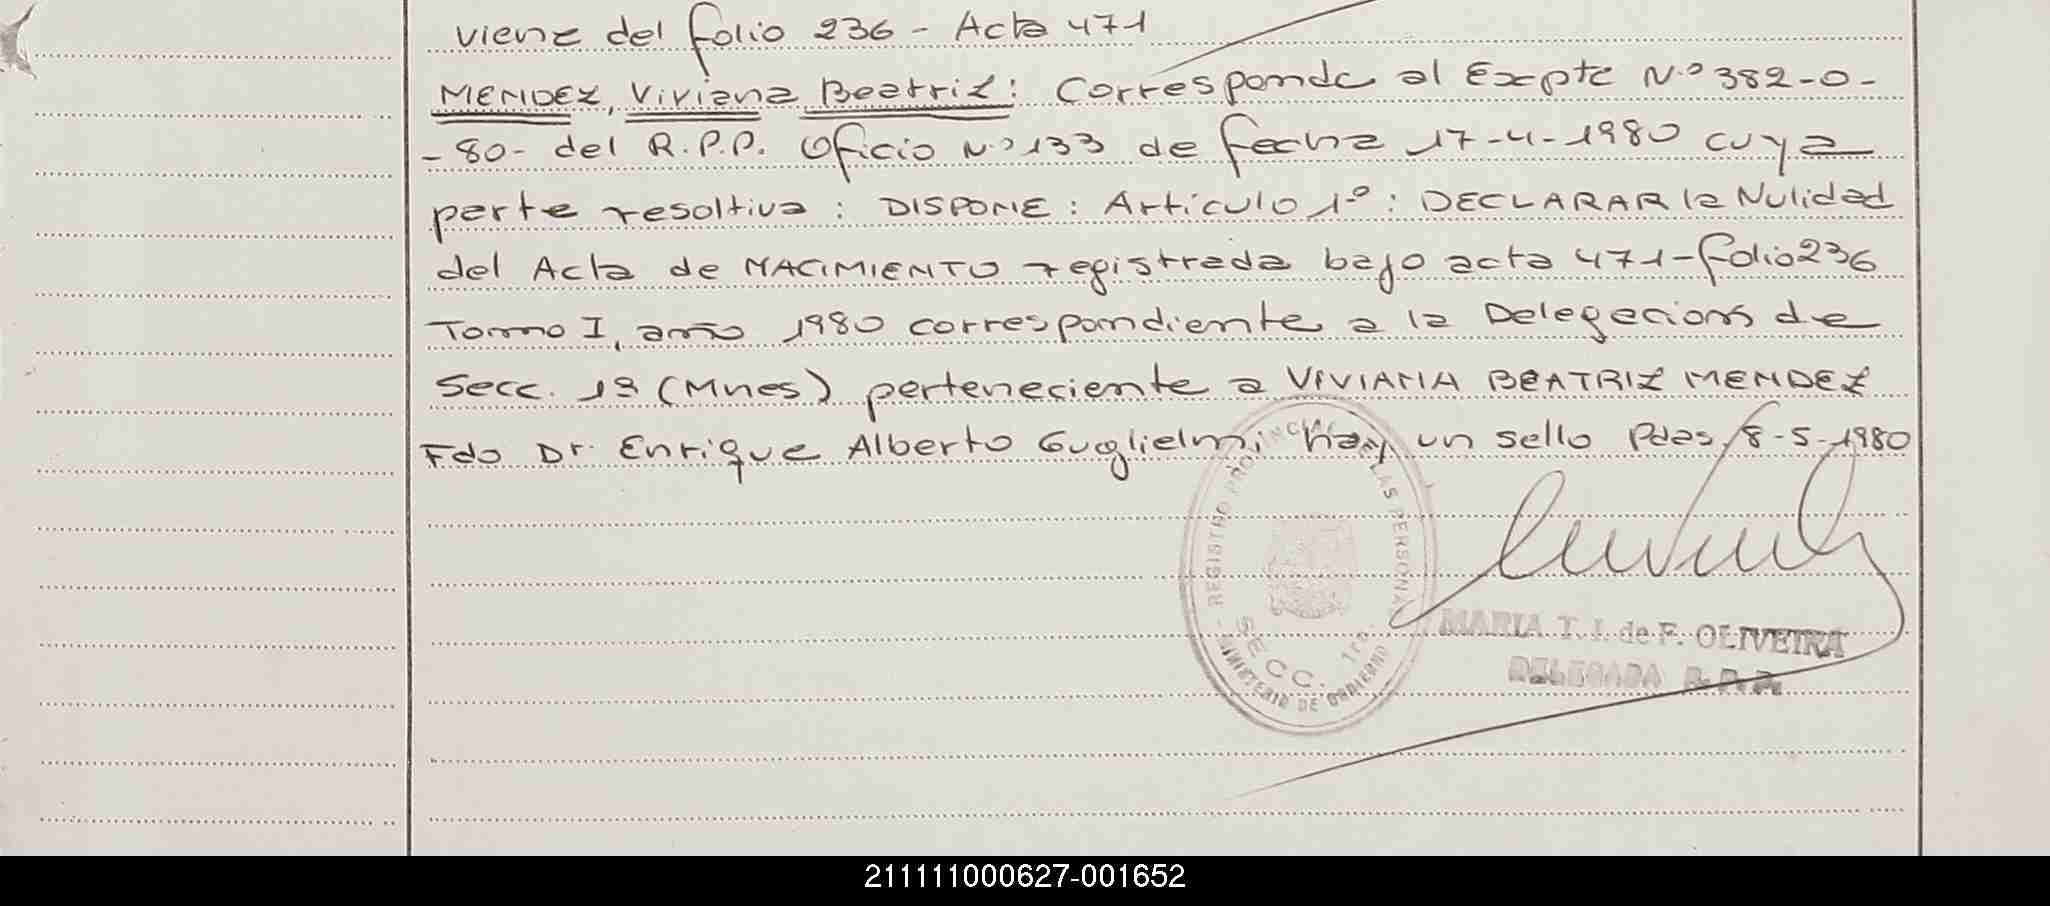 viene del folio 236 - Acta 471
MENDEZ, Viviana Beatriz: Corresponde al Expte N.º 382-0-
-80- del R.P.P. Oficio N.º 133 de fecha 17-4-1980 cuya
parte resoltiva : DISPONE : Artículo 1º : DECLARAR la Nulidad
del Acta de NACIMIENTO registrada bajo acta 471-folio 236
Tomo I, año 1980 correspondiente a la Delegacion de
Secc. 1ª (Mnes) perteneciente a VIVIANA BEATRIZ MENDEZ
Fdo Dr. Enrique Alberto Guglielmi hay un sello Pdas, 8-5-1980
REGISTRO PROVINCIAL DE LAS PERSONAS
SECC. 1ra.
- MINISTERIO DE GOBIERNO -
MARIA T. I. de F. OLIVEIRA
DELEGADA R. P. P.
211111000627-001652